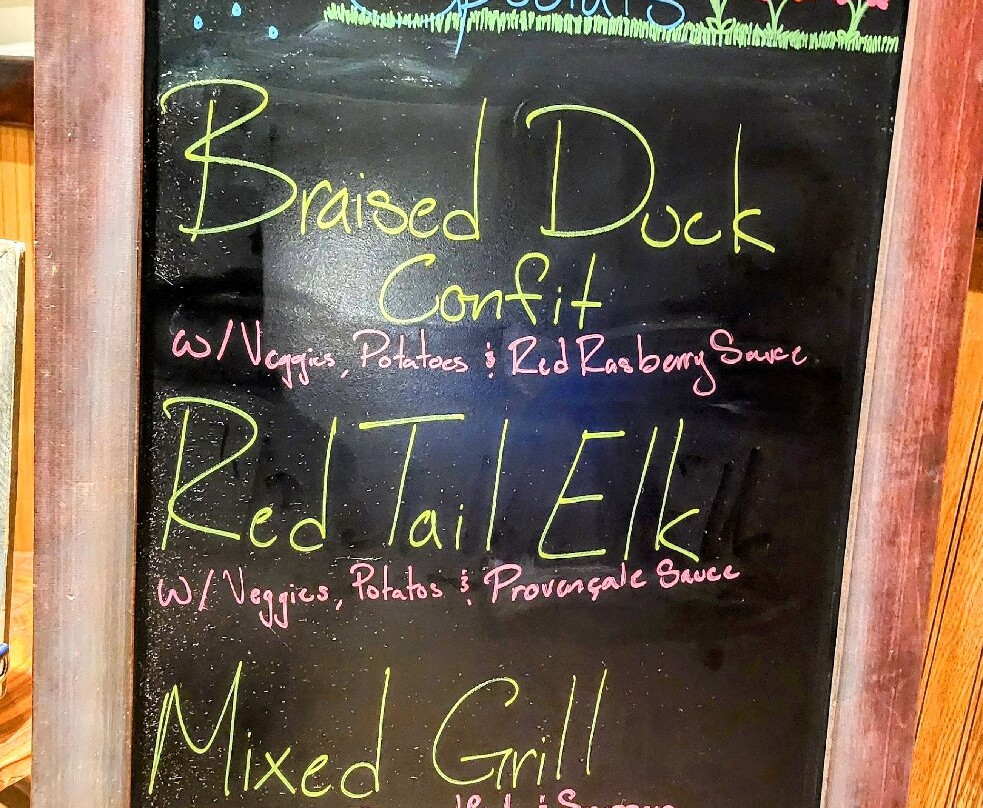 Specials
Braised Duck
Confit
w/Veggies, Potatoes & Red Rasberry Sauce
Red Tail Elk
w/Veggies, Potatos & Provençale Sauce
Mixed Grill